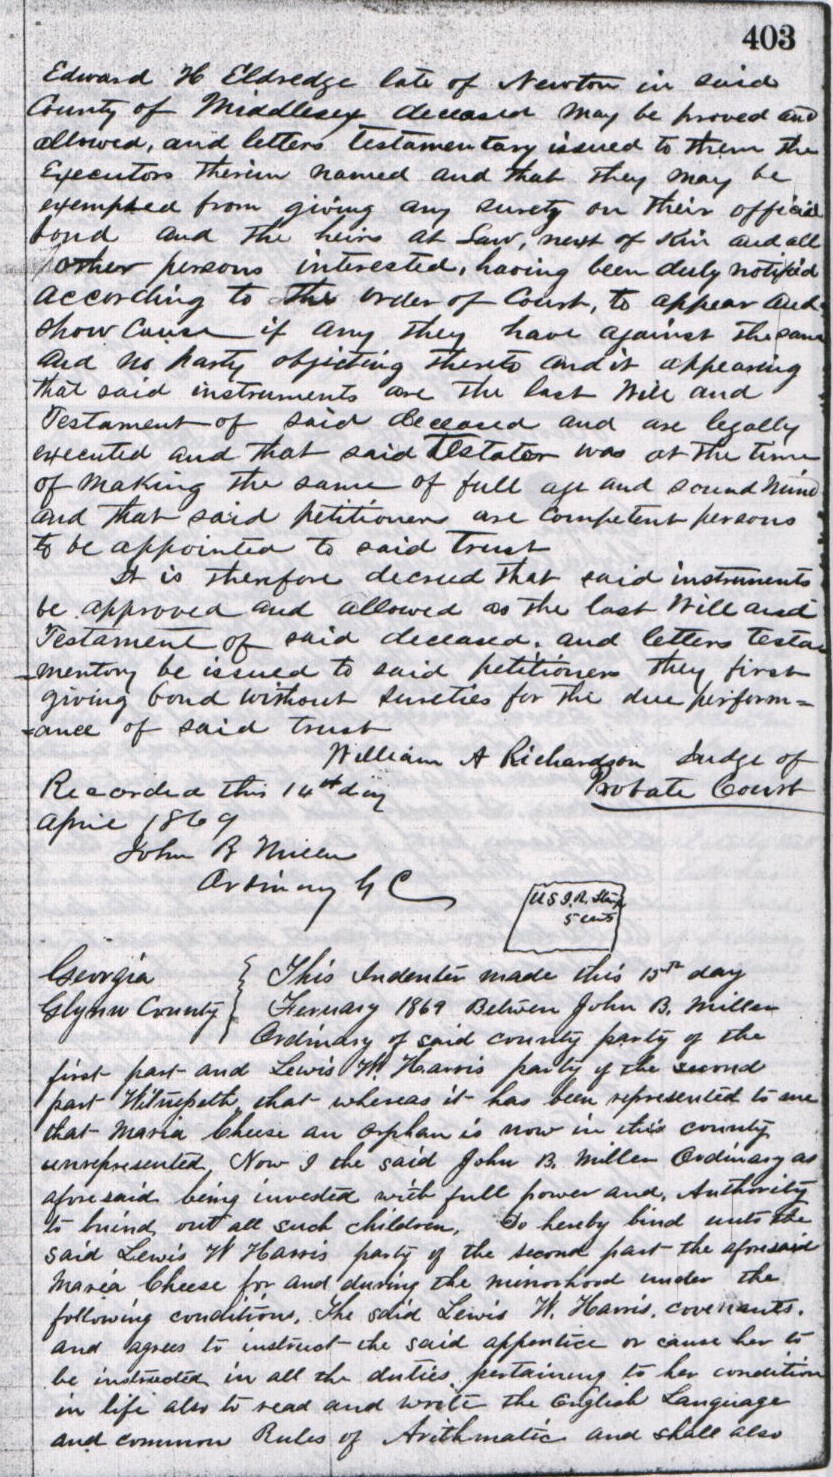 403
Edward H Eldredge late of Newton in said
County of Middlesex deceased may be proved and
allowed, and letters testamentary issued to them the
Executors therein named and that they may be
exempted from giving any surety on their official
bond and the heirs at Law, next of Kin and all
other persons interested, having been duly notified
according to the order of Court, to appear and
show Cause if any they have against the same
and no party objecting thereto and it appearing
that said instruments are the last Will and
Testament of said deceased and are legally
executed and that said Testator was at the time
of making the same of full age and sound mind
and that said petitioners are competent persons
to be appointed to said Trust
It is therefore decreed that said instruments
be approved and allowed as the last Will and
Testament of said deceased, and letters testa
-mentory be issued to said petitioners they first
giving bond without sureties for the due perform=
=ance of said trust
William A Richardson Judge of
Probate Court
Recorded this 14th day
April 1869
John B Miller
Ordinary G C
U S I. R. Stamp
5 cents
Georgia
Glynn County
This Indenter made this 15th day
Feruary 1869 Between John B. Miller
Ordinary of said county party of the
first part and Lewis W. Harris party of the second
part Witnesseth that whereas it has been represented to me
that Maria Cheese an orphan is now in this county
unrepresented, Now I the said John B. Miller Ordinary as
aforesaid being invested with full power and, Authority
to buind out all such children, Do hereby bind unto the
said Lewis W Harris party of the second part the aforesaid
Maria Cheese for and during the minorhood under the
following conditions, The said Lewis W. Harris, covenants.
and agrees to instruct the said apprentice or cause her to
be instructed in all the duties pertaining to her condition
in life also to read and write the English Language
and common Rules of Arithmatic and shall also